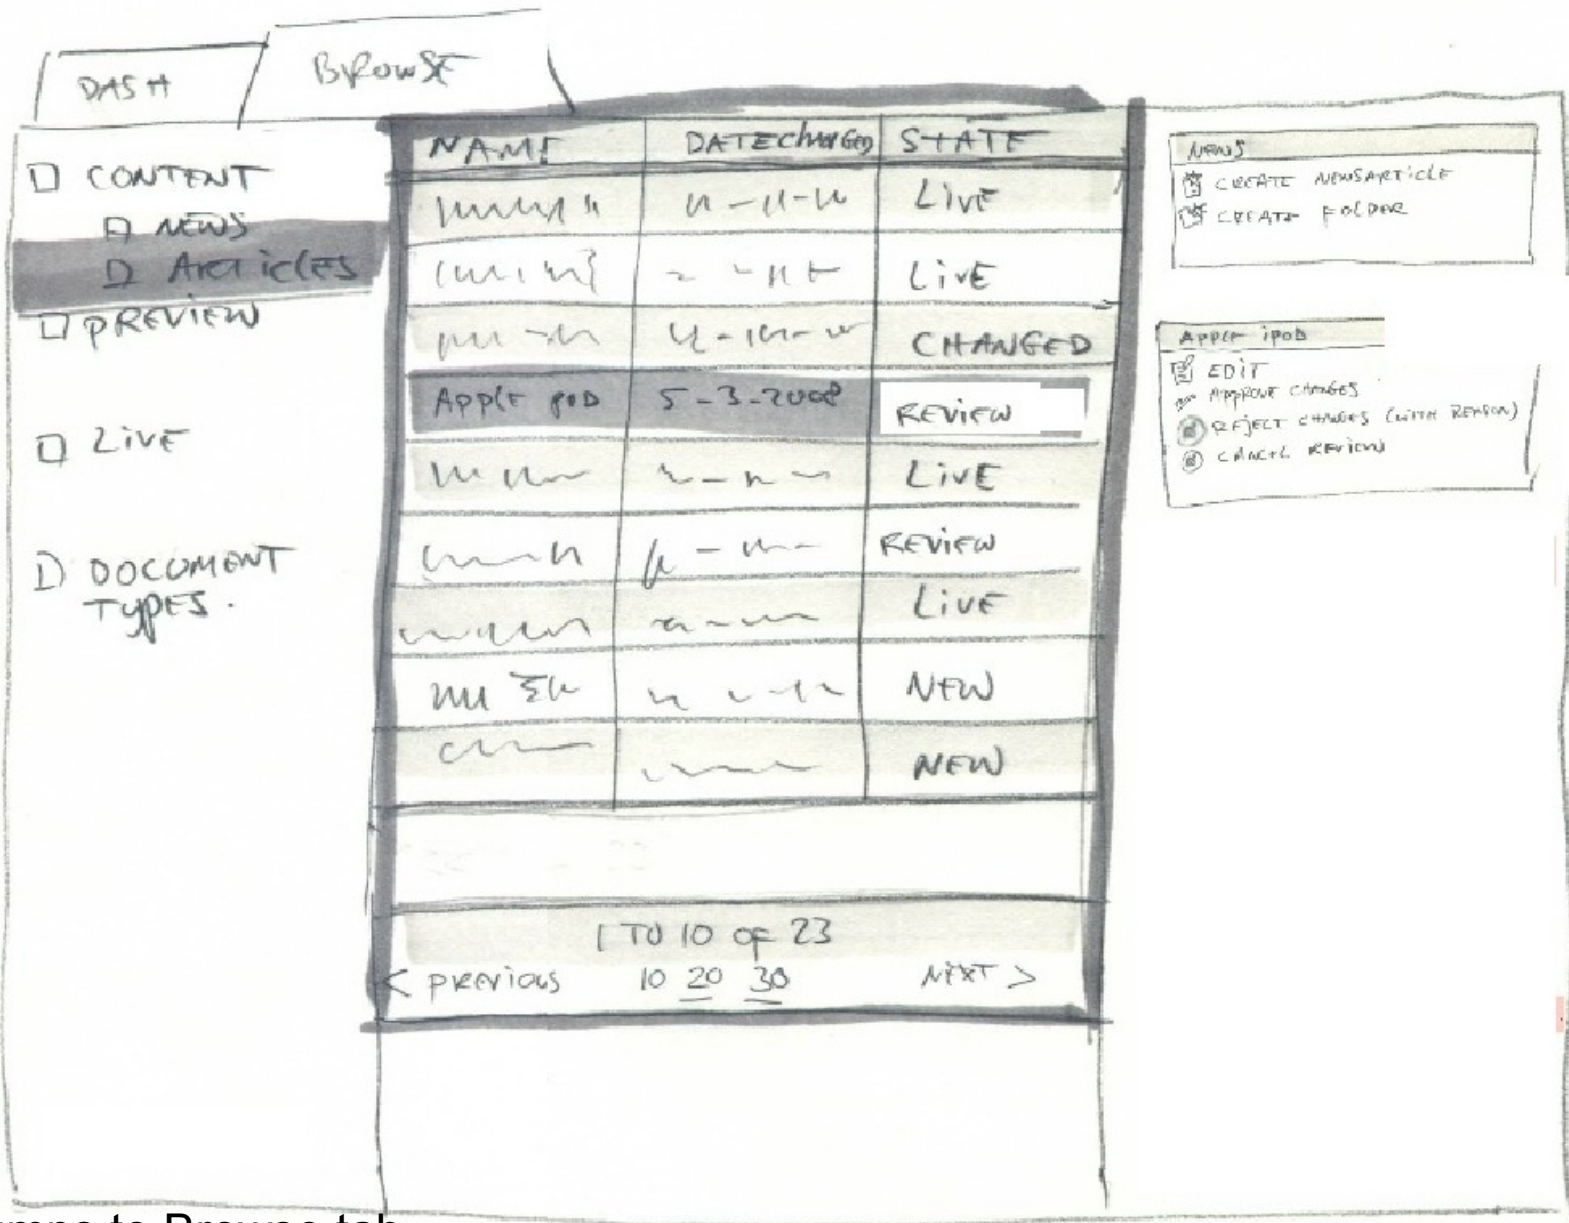 DASH
BROWSE
CONTENT
NEWS
ARTICLES
PREVIEW
LIVE
DOCUMENT
TYPES.
NAME DATE CHANGED STATE
LIVE
LIVE
CHANGED
APPLE POD 5-3-2008 REVIEW
LIVE
REVIEW
LIVE
NEW
NEW
1 TO 10 OF 23
< PREVIOUS 10 20 30 NEXT >
NEWS
CREATE NEWSARTICLE
CREATE FOLDER
APPLE IPOD
EDIT
APPROVE CHANGES
REJECT CHANGES (WITH REASON)
CANCEL REVIEW
to Browse tab